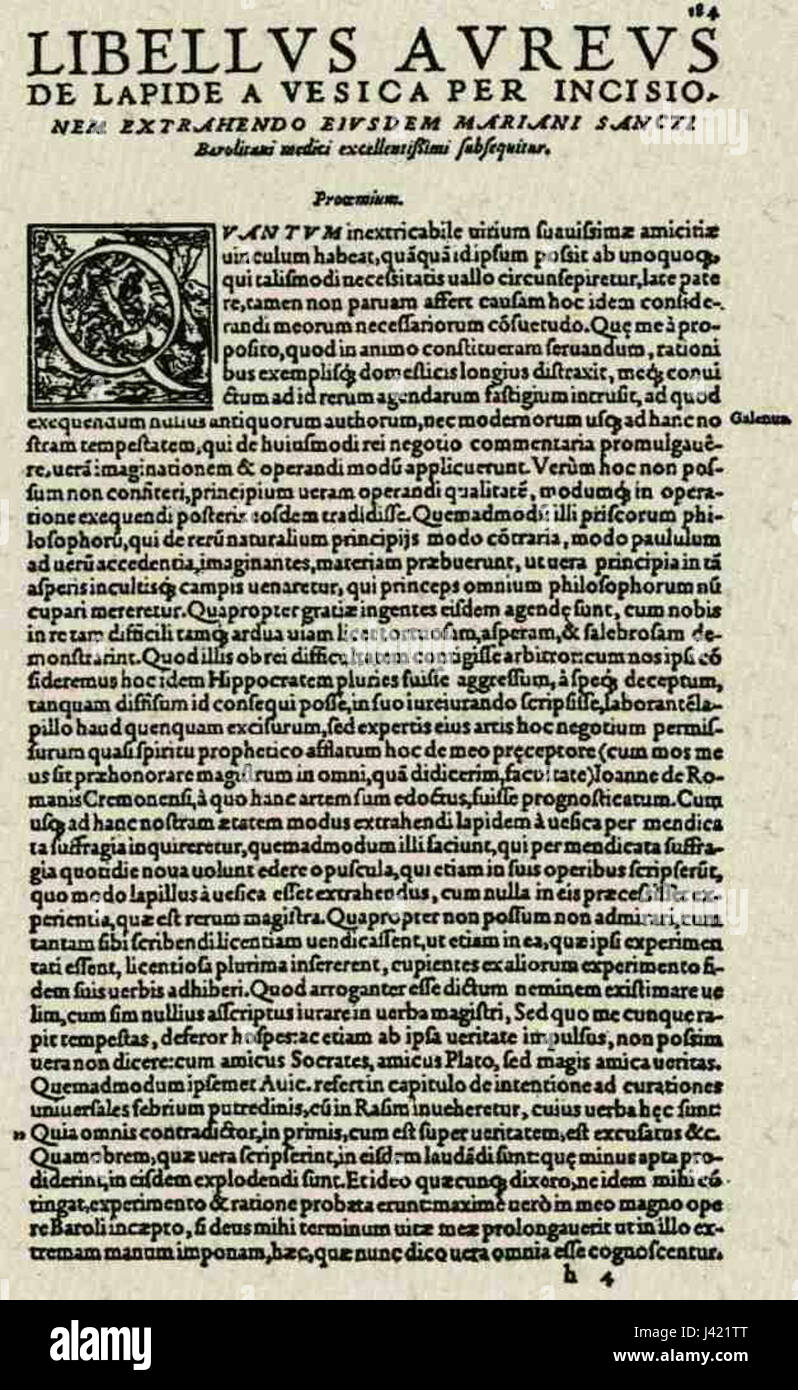 184
LIBELLVS AVREVS
DE LAPIDE A VESICA PER INCISIO-
NEM EXTRAHENDO EIVSDEM MARIANI SANCTI
Barolitani medici excellentißimi subsequitur.
Proœmium.
QVANTVM inextricabile uirium suauissimæ amicitiæ
uinculum habeat, quāquā idipsum possit ab unoquoq;
qui talismodi necessitatis uallo circunsepiretur, late pate
re, tamen non paruam affert causam hoc idem conside-
randi meorum necessariorum cōsuetudo. Quę me à pro-
posito, quod in animo constitueram seruandum, rationi
bus exemplisq; domesticis longius distraxit, meq; conui
ctum ad id rerum agendarum fastigium intrusit, ad quod
exequendum nullius antiquorum authorum, nec modernorum usq; ad hanc no
Galenus.
stram tempestatem, qui de huiusmodi rei negotio commentaria promulgauê-
re, uerā imaginationem & operandi modū applicuerunt. Verùm hoc non pos-
sum non confiteri, principium ueram operandi qualitatē, modumq; in opera-
tione exequendi posteris eosdem tradidisse. Quemadmodū illi priscorum phi-
losophorū, qui de rerū naturalium principijs modo cōtraria, modo paululum
ad uerū accedentia, imaginantes, materiam præbuerunt, ut uera principia in tā
asperis incultisq; campis uenaretur, qui princeps omnium philosophorum nū
cupari mereretur. Quapropter gratiæ ingentes eisdem agendę sunt, cum nobis
in re tam difficili tamq; ardua uiam licet tortuosam, asperam, & salebrosam de-
monstrarint. Quod illis ob rei difficultatem contigisse arbitror: cum nos ipsi cō
sideremus hoc idem Hippocratem pluries fuisse aggressum, à speq; deceptum,
tanquam diffisum id consequi posse, in suo iureiurando scripsisse, laborantē la-
pillo haud quenquam excisurum, sed expertis eius artis hoc negotium permis-
surum quasi spiritu prophetico afflatum hoc de meo pręceptore (cum mos me
us sit præhonorare magistrum in omni, quā didicerim, facultate) Ioanne de Ro-
manis Cremonensi, à quo hanc artem sum edoctus, fuisse prognosticatum. Cum
usq; ad hanc nostram ætatem modus extrahendi lapidem à uesica per mendica
ta suffragia inquireretur, quemadmodum illi faciunt, qui per mendicata suffra-
gia quotidie noua uolunt edere opuscula, qui etiam in suis operibus scripserūt,
quo modo lapillus à uesica esset extrahendus, cum nulla in eis præcessisset ex-
perientia, quæ est rerum magistra. Quapropter non possum non admirari, cum
tantam sibi scribendi licentiam uendicassent, ut etiam in ea, quæ ipsi experimen
tati essent, licentiosa plurima insererent, cupientes ex aliorum experimento fi-
dem suis uerbis adhiberi. Quod arroganter esse dictum neminem existimare ue
lim, cum sim nullius asscriptus iurare in uerba magistri, Sed quo me cunque ra-
pit tempestas, deferor hospes: ac etiam ab ipsa ueritate impulsus, non possim
uera non dicere: cum amicus Socrates, amicus Plato, sed magis amica ueritas.
Quemadmodum ipsemet Auic. refert in capitulo de intentione ad curationes
uniuersales febrium putredinis, cū in Rasim inueheretur, cuius uerba hęc sunt:
„ Quia omnis contradictor, in primis, cum est super ueritatem, est excusatus &c.
Quamobrem, quæ uera scripserint, in eisdem laudādi sunt: quę minus apta pro-
diderint, in eisdem explodendi sunt. Et ideo quæcunq; dixero, ne idem mihi cō-
tingat, experimento & ratione probata erunt: maximè uerò in meo magno ope
re Baroli incæpto, si deus mihi terminum uitæ meæ prolongauerit ut in illo ex-
tremam manum imponam, hæc, quæ nunc dico uera omnia esse cognoscentur.
h 4
alamy
alamy
alamy
alamy
Image ID: J421TT
www.alamy.com